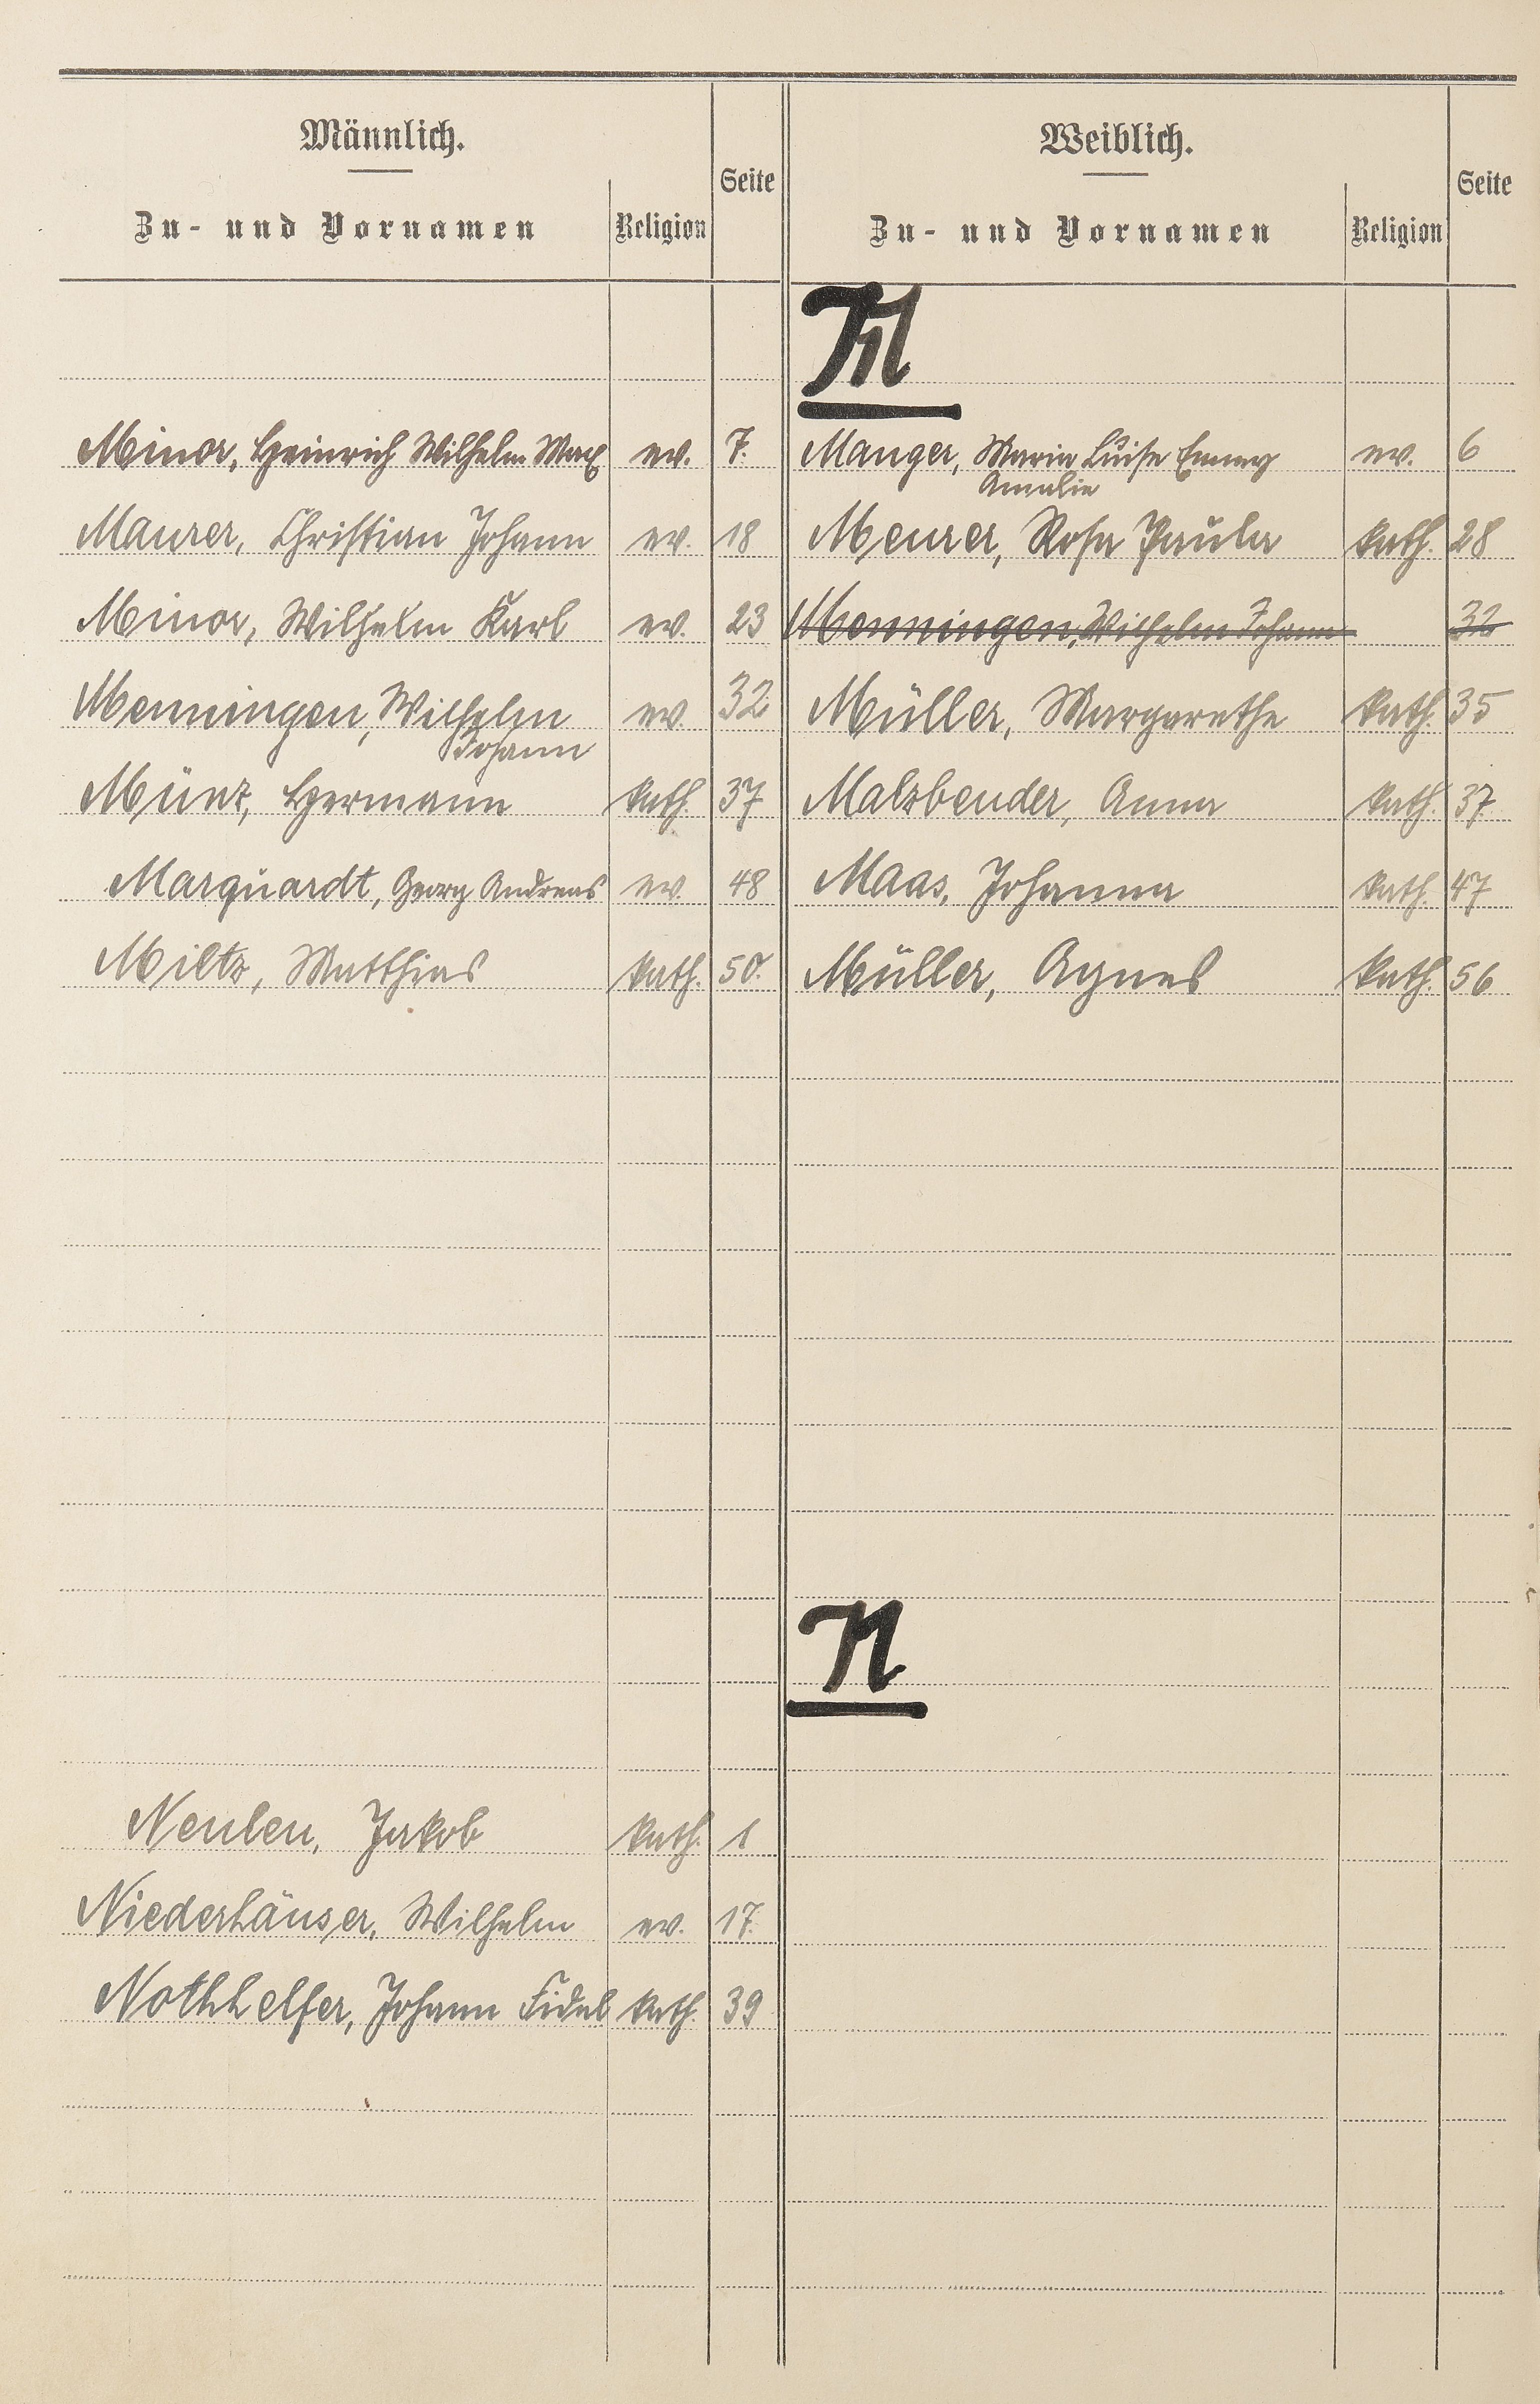 Männlich.
Zu- und Vornamen Religion Seite
Weiblich.
Zu- und Vornamen Religion Seite
M
Minor, Heinrich Wilhelm Max ev. 7.
Manger, Maria Luise Emmy ev. 6
Amalie
Maurer, Christian Johann ev. 18
Meurer, Rosa Paula kath. 28
Minor, Wilhelm Karl ev. 23
Menningen, Wilhelm Johann 32
Menningen, Wilhelm ev. 32
Johann
Müller, Margarethe kath. 35
Münz, Hermann kath. 37
Malzbender, Anna kath. 37
Marquardt, Georg Andreas ev. 48
Maas, Johanna kath. 47
Miltz, Matthias kath. 50.
Müller, Agnes kath. 56
N
Neulen, Jakob kath. 1
Niederhäuser, Wilhelm ev. 17.
Nothhelfer, Johann Fidel kath. 39